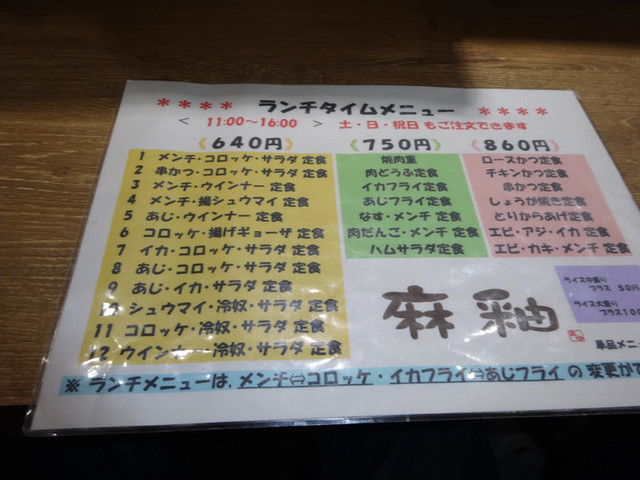 ＊＊＊＊ ランチタイムメニュー ＊＊＊＊
＜ 11:00～16:00 ＞ 土・日・祝日 もご注文できます
《640円》
1 メンチ・コロッケ・サラダ 定食
2 串かつ・コロッケ・サラダ 定食
3 メンチ・ウインナー 定食
4 メンチ・揚シュウマイ 定食
5 あじ・ウインナー 定食
6 コロッケ・揚げギョーザ 定食
7 イカ・コロッケ・サラダ 定食
8 あじ・コロッケ・サラダ 定食
9 あじ・イカ・サラダ 定食
10 シュウマイ・冷奴・サラダ 定食
11 コロッケ・冷奴・サラダ 定食
12 ウインナー・冷奴・サラダ 定食
《750円》
焼肉重
肉どうふ定食
イカフライ定食
あじフライ定食
なす・メンチ 定食
肉だんご・メンチ 定食
ハムサラダ定食
《860円》
ロースかつ定食
チキンかつ定食
串かつ定食
しょうが焼き定食
とりからあげ定食
エビ・アジ・イカ 定食
エビ・カキ・メンチ 定食
麻釉
ライス中盛り
プラス 50円
ライス大盛り
プラス100
単品メニ
※ ランチメニューは、メンチ⇔コロッケ・イカフライ⇔あじフライ の 変更がで